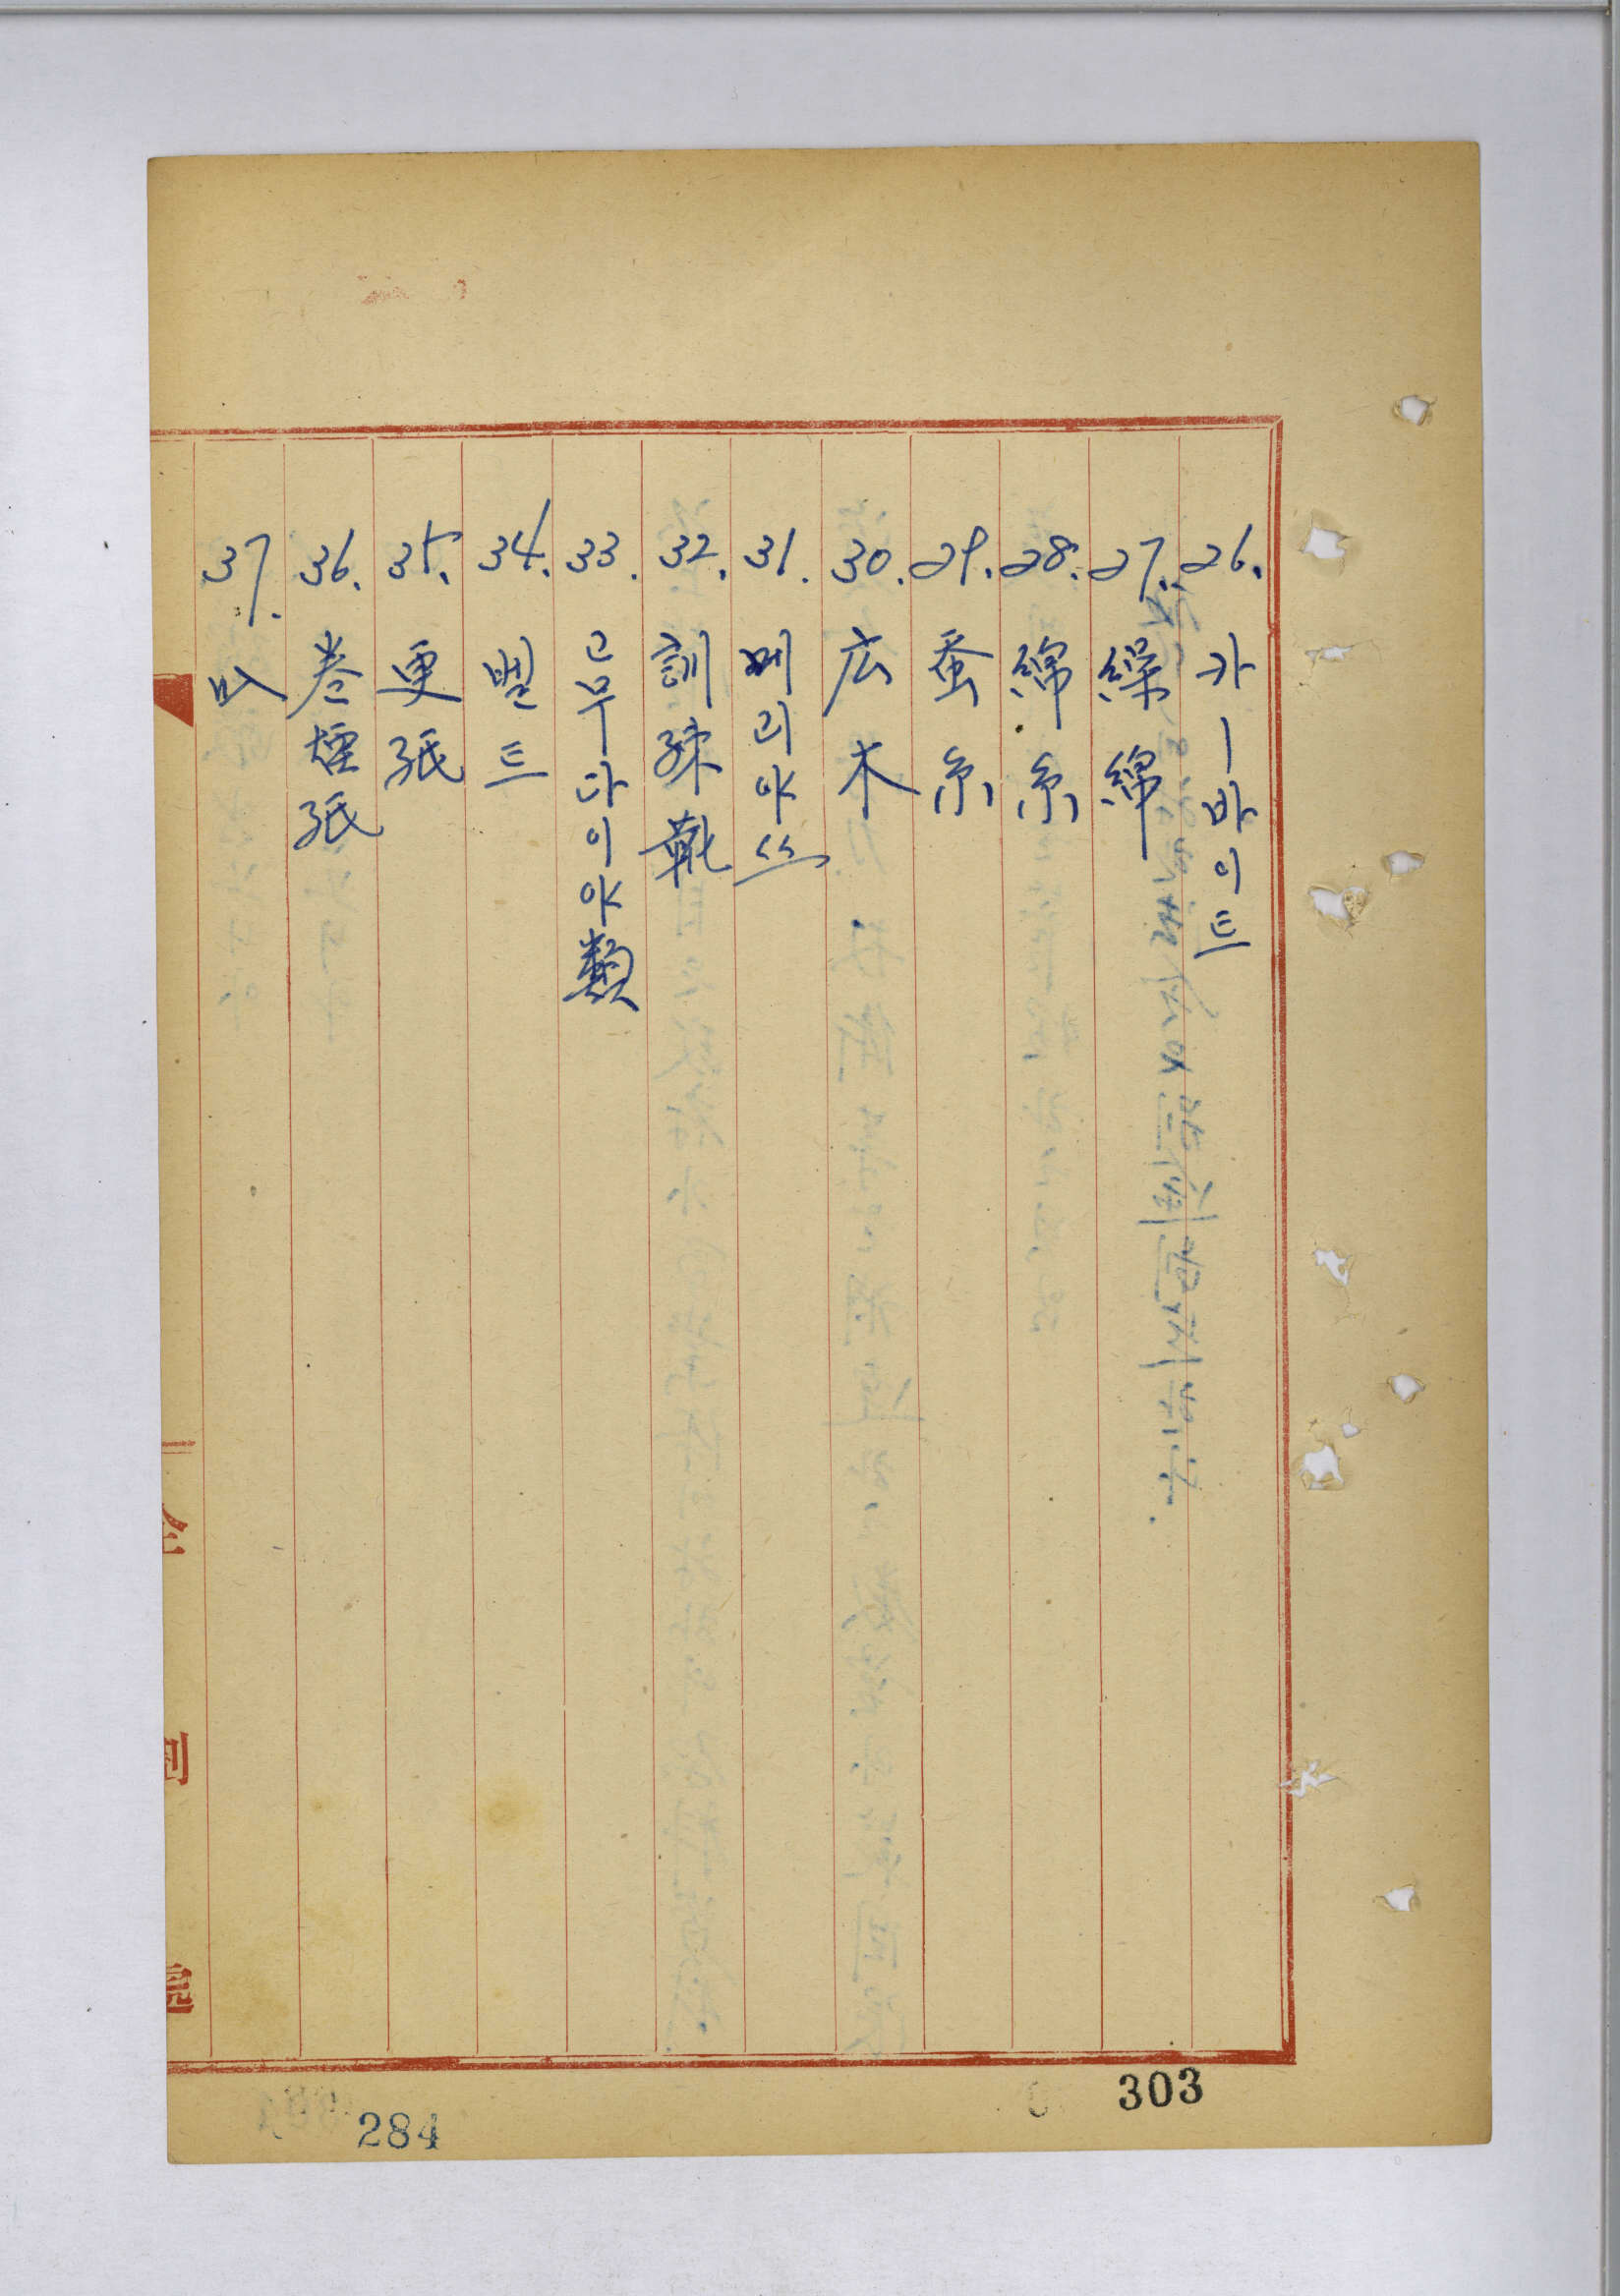 26. 카ー바이트
27. 繰綿
28. 綿糸
29. 蚕糸
30. 広木
31. 메리야쓰
32. 訓練靴
33. 고무다이야類
34. 벨트
35. 更紙
36. 卷煙紙
37. 叺
303
284